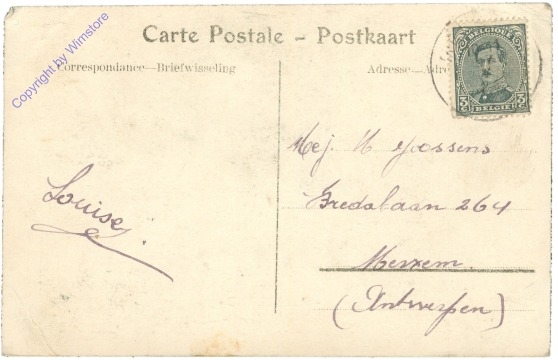 Copyright by Wimstore
Carte Postale – Postkaart
Correspondance—Briefwisseling
Adresse—Adre
BELGIQUE
3 C 3 C
BELGIË
Louise
Mej. H Goossens
Bredalaan 264
Merxem
(Antwerpen)